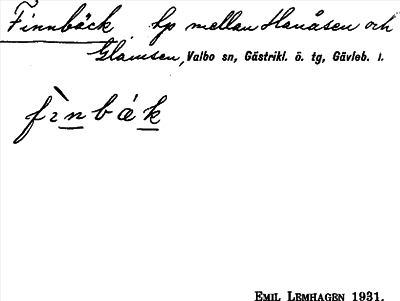 Finnbäck lp mellan Hanåsen och
Glamsen, Valbo sn, Gästrikl. ö. tg, Gävleb. l.
fìnbák
EMIL LEMHAGEN 1931.